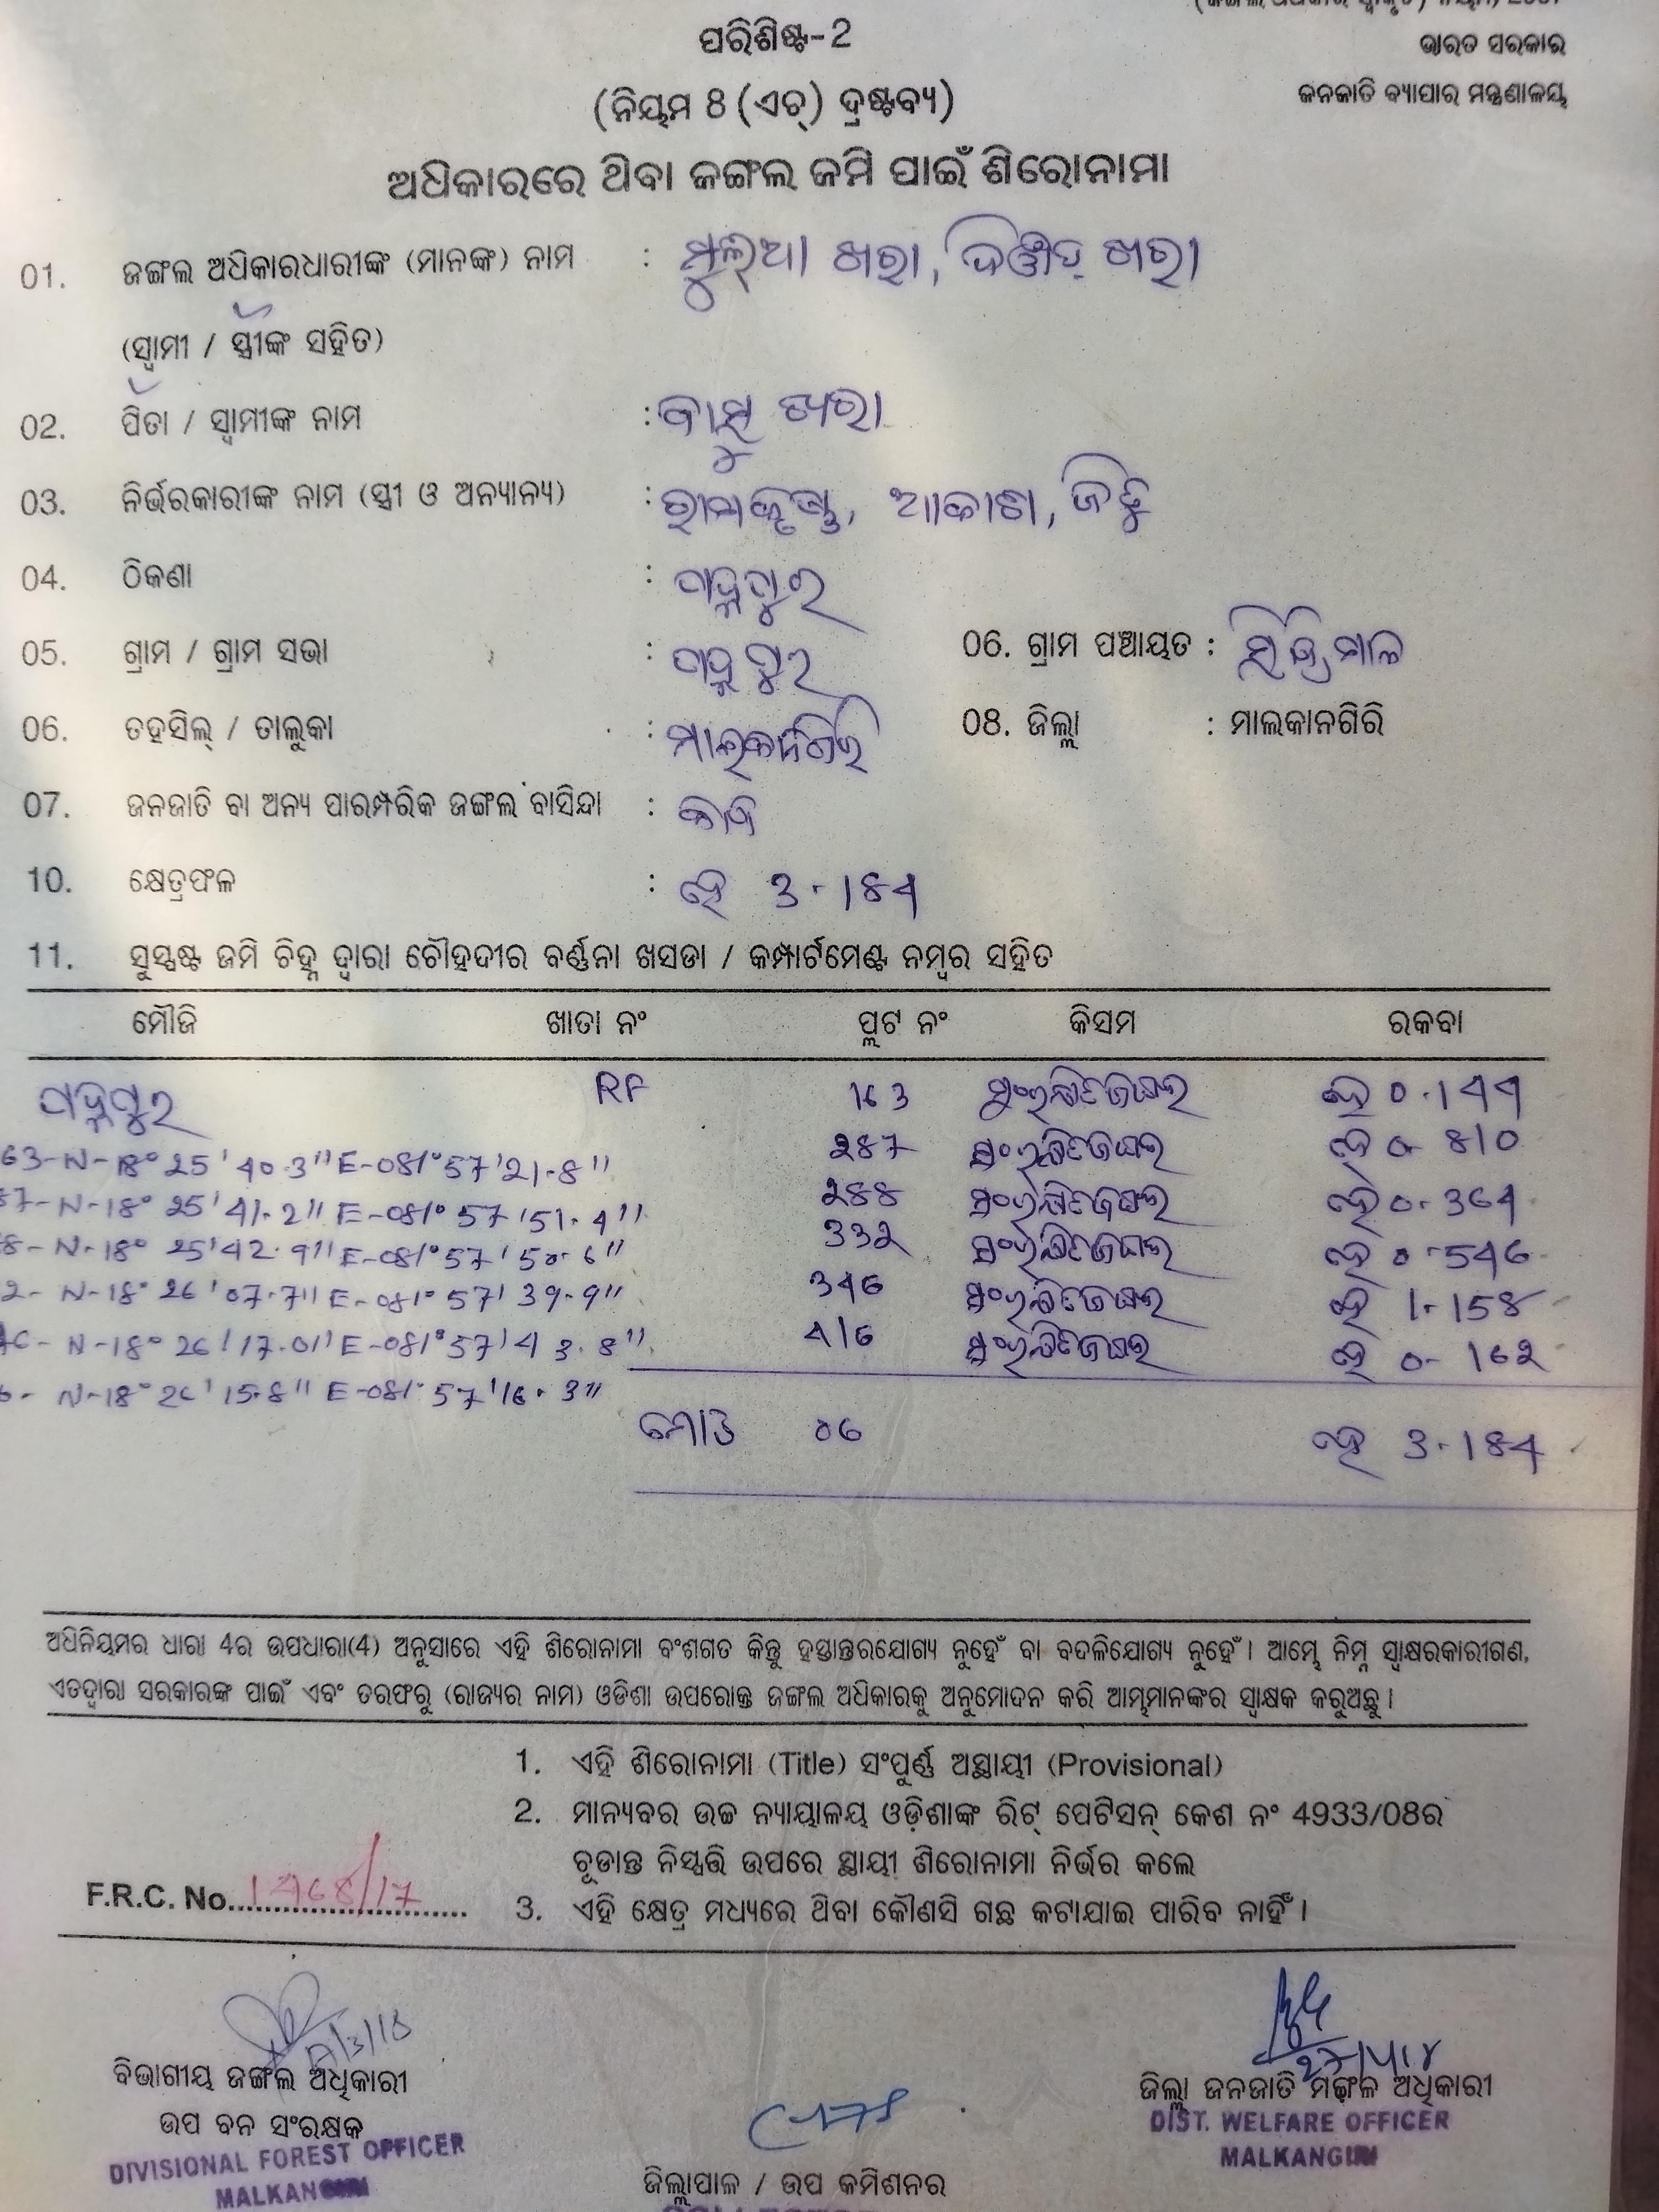 ପରିଶିଷ୍ଟ-2
ଭାରତ ସରକାର
(ନିୟମ 8 (ଏଚ୍) ଦ୍ରଷ୍ଟବ୍ୟ)
ଜନଜାତି ବ୍ୟାପାର ମନ୍ତ୍ରଣାଳୟ
ଅଧିକାରରେ ଥିବା ଜଙ୍ଗଲ ଜମି ପାଇଁ ଶିରୋନାମା
01. ଜଙ୍ଗଲ ଅଧିକାରଧାରୀଙ୍କ (ମାନଙ୍କ) ନାମ : ଖରା, ଖରା
(ସ୍ୱାମୀ / ସ୍ତ୍ରୀଙ୍କ ସହିତ)
02. ପିତା / ସ୍ୱାମୀଙ୍କ ନାମ : ବାସୁ ଖରା
03. ନିର୍ଭରକାରୀଙ୍କ ନାମ (ସ୍ତ୍ରୀ ଓ ଅନ୍ୟାନ୍ୟ) : ରାମକୃଷ୍ଣ, ଆକାଶ,
04. ଠିକଣା : ପଦ୍ମପୁର
05. ଗ୍ରାମ / ଗ୍ରାମ ସଭା : ପଦ୍ମପୁର 06. ଗ୍ରାମ ପଞ୍ଚାୟତ :
06. ତହସିଲ୍ / ତାଲୁକା : ମାଲକାନଗିରି 08. ଜିଲ୍ଲା : ମାଲକାନଗିରି
07. ଜନଜାତି ବା ଅନ୍ୟ ପାରମ୍ପରିକ ଜଙ୍ଗଲ ବାସିନ୍ଦା :
10. କ୍ଷେତ୍ରଫଳ : ହେ 3.184
11. ସୁସ୍ପଷ୍ଟ ଜମି ଚିହ୍ନ ଦ୍ୱାରା ଚୌହଦୀର ବର୍ଣ୍ଣନା ଖସଡା / କମ୍ପାର୍ଟମେଣ୍ଟ ନମ୍ବର ସହିତ
ମୌଜି ଖାତା ନଂ ପ୍ଲଟ ନଂ କିସମ ରକବା
ପଦ୍ମପୁର RF 163 ହେ 0.144
63-N-18° 25' 40.3" E-081° 57' 21.8" 287 ହେ 0-810
87-N-18° 25' 41.2" E-081° 57' 51.4" 288 ହେ 0-364
8-N-18° 25' 42.9" E-081° 57' 50.6" 332 ହେ 0-546
2-N-18° 26' 07.7" E-081° 57' 39.9" 346 ହେ 1-158
46-N-18° 26' 17.01" E-081° 57' 43.8" 416 ହେ 0-162
6-N-18° 26' 15.8" E-081° 57' 16.3"
ମୋଟ 06 ହେ 3.184
ଅଧିନିୟମର ଧାରା 4ର ଉପଧାରା(4) ଅନୁସାରେ ଏହି ଶିରୋନାମା ବଂଶଗତ କିନ୍ତୁ ହସ୍ତାନ୍ତରଯୋଗ୍ୟ ନୁହେଁ ବା ବଦଳିଯୋଗ୍ୟ ନୁହେଁ । ଆମ୍ଭେ ନିମ୍ନ ସ୍ୱାକ୍ଷରକାରୀଗଣ,
ଏତଦ୍ୱାରା ସରକାରଙ୍କ ପାଇଁ ଏବଂ ତରଫରୁ (ରାଜ୍ୟର ନାମ) ଓଡିଶା ଉପରୋକ୍ତ ଜଙ୍ଗଲ ଅଧିକାରକୁ ଅନୁମୋଦନ କରି ଆମ୍ଭମାନଙ୍କର ସ୍ୱାକ୍ଷକ କରୁଅଛୁ ।
1. ଏହି ଶିରୋନାମା (Title) ସଂପୁର୍ଣ୍ଣ ଅସ୍ଥାୟୀ (Provisional)
2. ମାନ୍ୟବର ଉଚ୍ଚ ନ୍ୟାୟାଳୟ ଓଡ଼ିଶାଙ୍କ ରିଟ୍ ପେଟିସନ୍ କେଶ ନଂ 4933/08ର
ଚୂଡାନ୍ତ ନିସ୍ପତ୍ତି ଉପରେ ସ୍ଥାୟୀ ଶିରୋନାମା ନିର୍ଭର କଲେ
F.R.C. No. 1468/17
3. ଏହି କ୍ଷେତ୍ର ମଧ୍ୟରେ ଥିବା କୌଣସି ଗଛ କଟାଯାଇ ପାରିବ ନାହିଁ ।
ବିଭାଗୀୟ ଜଙ୍ଗଲ ଅଧିକାରୀ
ଉପ ବନ ସଂରକ୍ଷକ
DIVISIONAL FOREST OFFICER
MALKANGIRI
ଜିଲ୍ଲାପାଳ / ଉପ କମିଶନର
ଜିଲ୍ଲା ଜନଜାତି ମଙ୍ଗଳ ଅଧିକାରୀ
DIST. WELFARE OFFICER
MALKANGIRI